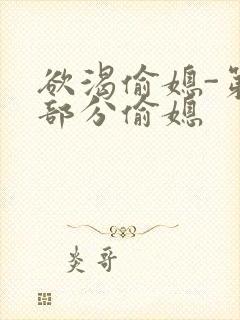 欲渴偷媳-第
部分偷媳
炎哥